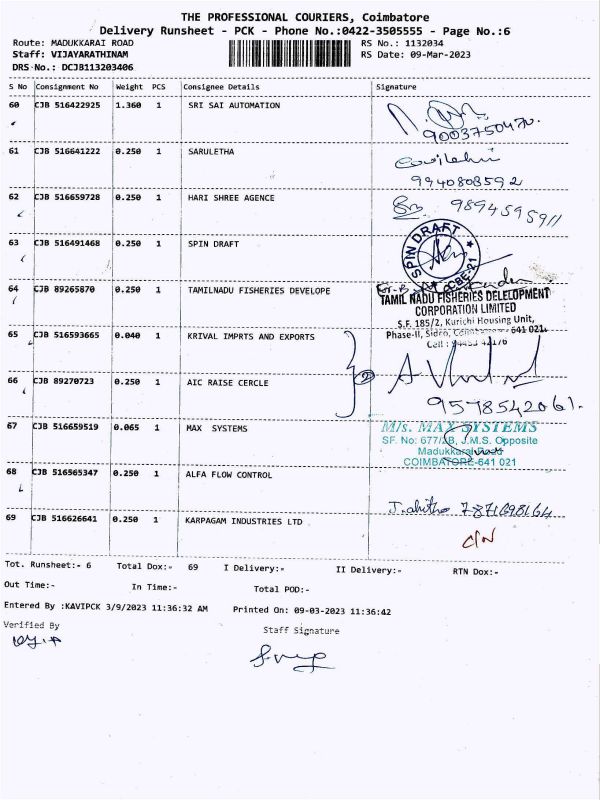 THE PROFESSIONAL COURIERS, Coimbatore
Delivery Runsheet - PCK - Phone No.:0422-3505555 - Page No.:6
Route: MADUKKARAI ROAD
RS No.: 1132034
Staff: VIJAYARATHINAM
RS Date: 09-Mar-2023
DRS No.: DCJB113203406
S No Consignment No Weight PCS Consignee Details Signature
60 CJB 516422925 1.360 1 SRI SAI AUTOMATION
9003750470.
61 CJB 516641222 0.250 1 SARULETHA
9940808592
62 CJB 516659728 0.250 1 HARI SHREE AGENCE
9894595911
63 CJB 516491468 0.250 1 SPIN DRAFT
SPIN DRAFT ★ CBE-21 ★
64 CJB 89265870 0.250 1 TAMILNADU FISHERIES DEVELOPE
TAMIL NADU FISHERIES DELELOPMENT
CORPORATION LIMITED
S.F. 185/2, Kurichi Housing Unit,
Phase-II, Sidco, Coimbatore-641 021.
65 CJB 516593665 0.040 1 KRIVAL IMPRTS AND EXPORTS
2
66 CJB 89270723 0.250 1 AIC RAISE CERCLE
9578542061.
67 CJB 516659519 0.065 1 MAX SYSTEMS
M/s. MAX SYSTEMS
SF. No: 677/2B, J.M.S. Opposite
Madukkarai Road
COIMBATORE-641 021
68 CJB 516565347 0.250 1 ALFA FLOW CONTROL
7871698164
69 CJB 516626641 0.250 1 KARPAGAM INDUSTRIES LTD
C/N
Tot. Runsheet:- 6 Total Dox:- 69 I Delivery:- II Delivery:- RTN Dox:-
Out Time:- In Time:- Total POD:-
Entered By :KAVIPCK 3/9/2023 11:36:32 AM Printed On: 09-03-2023 11:36:42
Verified By
Staff Signature